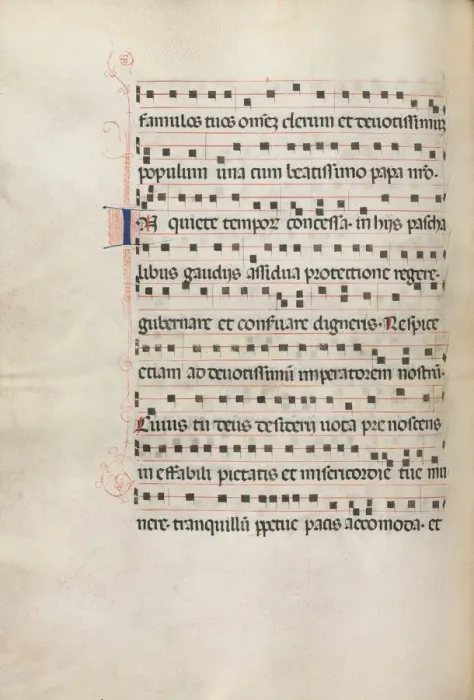 famulos tuos omnez clerum et deuotissimuz
populum una cum beatissimo papa nro.
N quiete tempoz concessa. in hijs pascha
libus gaudijs assidua protectione regere.
gubernare et conseruare digneris. Respice
etiam ad deuotissimū imperatorem nostrū.
Cuius tu deus desiderij uota prenoscens
ineffabili pietatis et misericordie tue mu
nere. tranquillū ppetue pacis accomoda. et